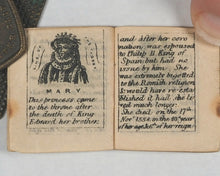 MARY.
This princess came
to the throne after
the death of King
Edward her brother;
and after her coro-
nation, was espoused
to Philip II King of
Spain but had no
issue by him. She
was extremely bigotted
to the Romish religion
& would have re esta-
blished it had she
lived much longer.
She died on the 17th
Novr 1558 in the
year of her age & of her reign